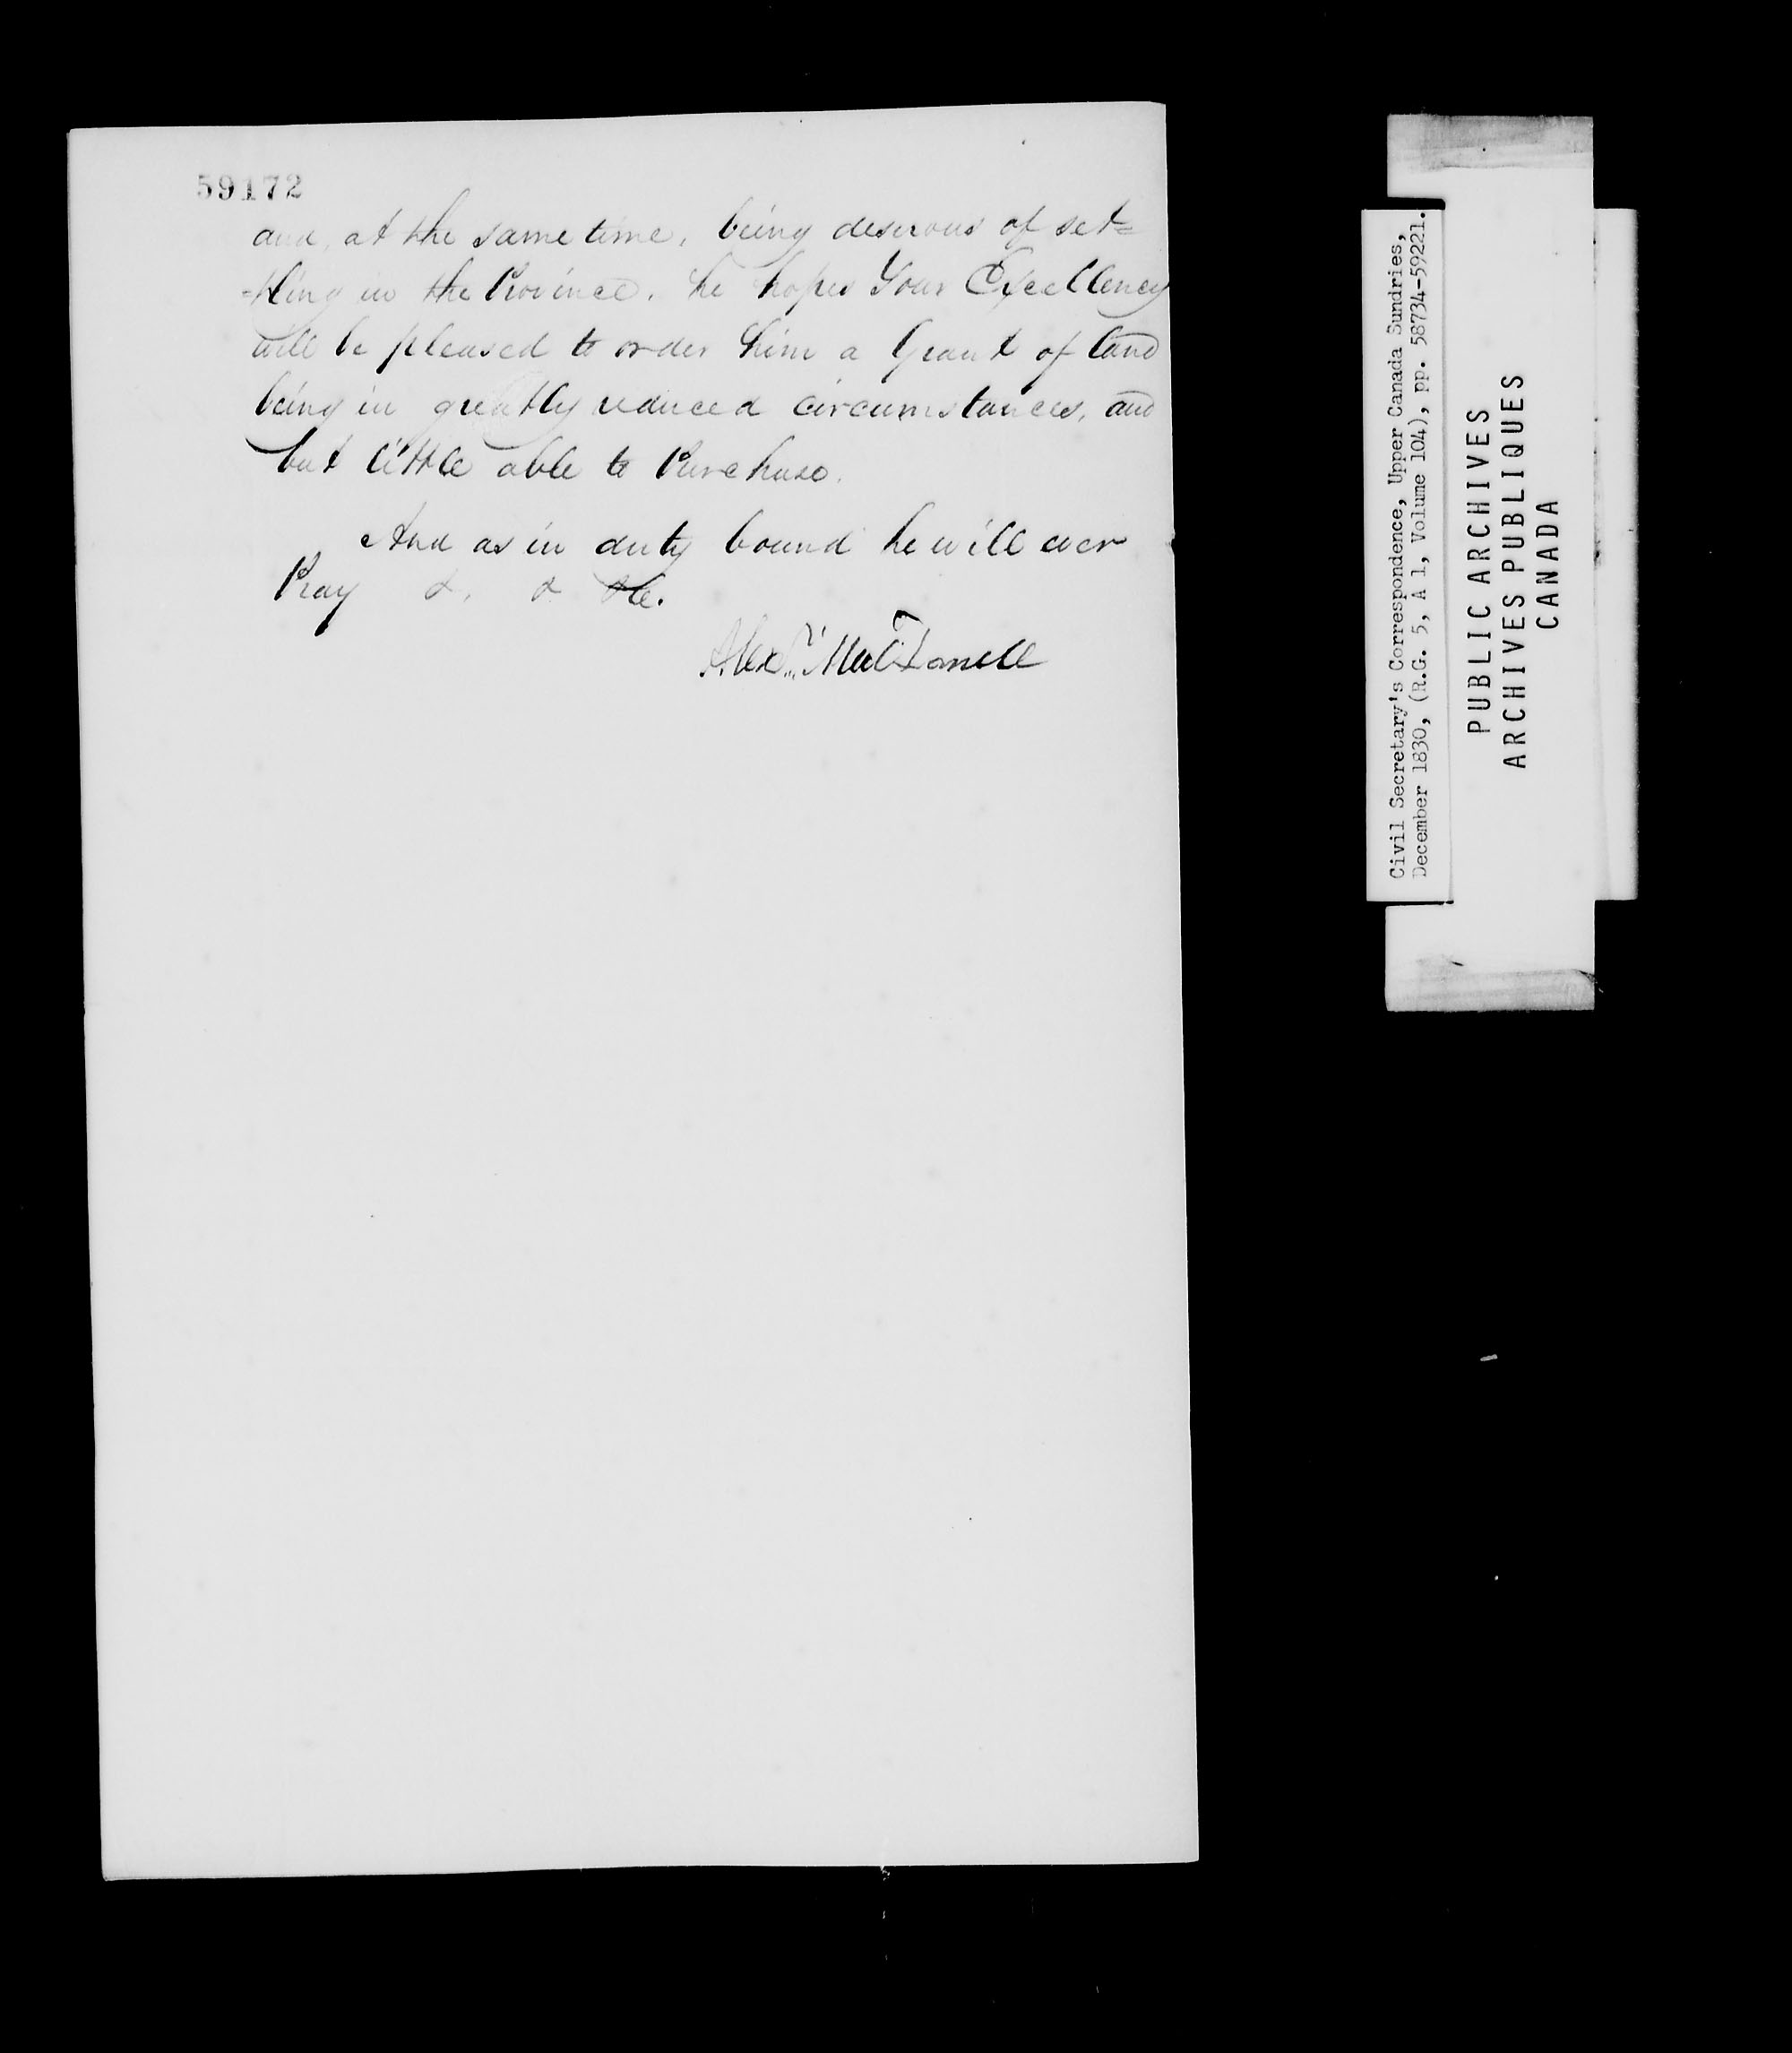 59172
and, at the same time, being desirous of set=
=tling in the Province, he hopes Your Excellency
will be pleased to order him a Grant of Land
being in greatly reduced circumstances, and
but little able to Purchase.
And as in duty bound he will ever
Pray &. & &c.
Alexr. MacDonell
Civil Secretary's Correspondence, Upper Canada Sundries,
December 1830, (R.G. 5, A 1, Volume 104), pp. 58734-59221.
PUBLIC ARCHIVES
ARCHIVES PUBLIQUES
CANADA